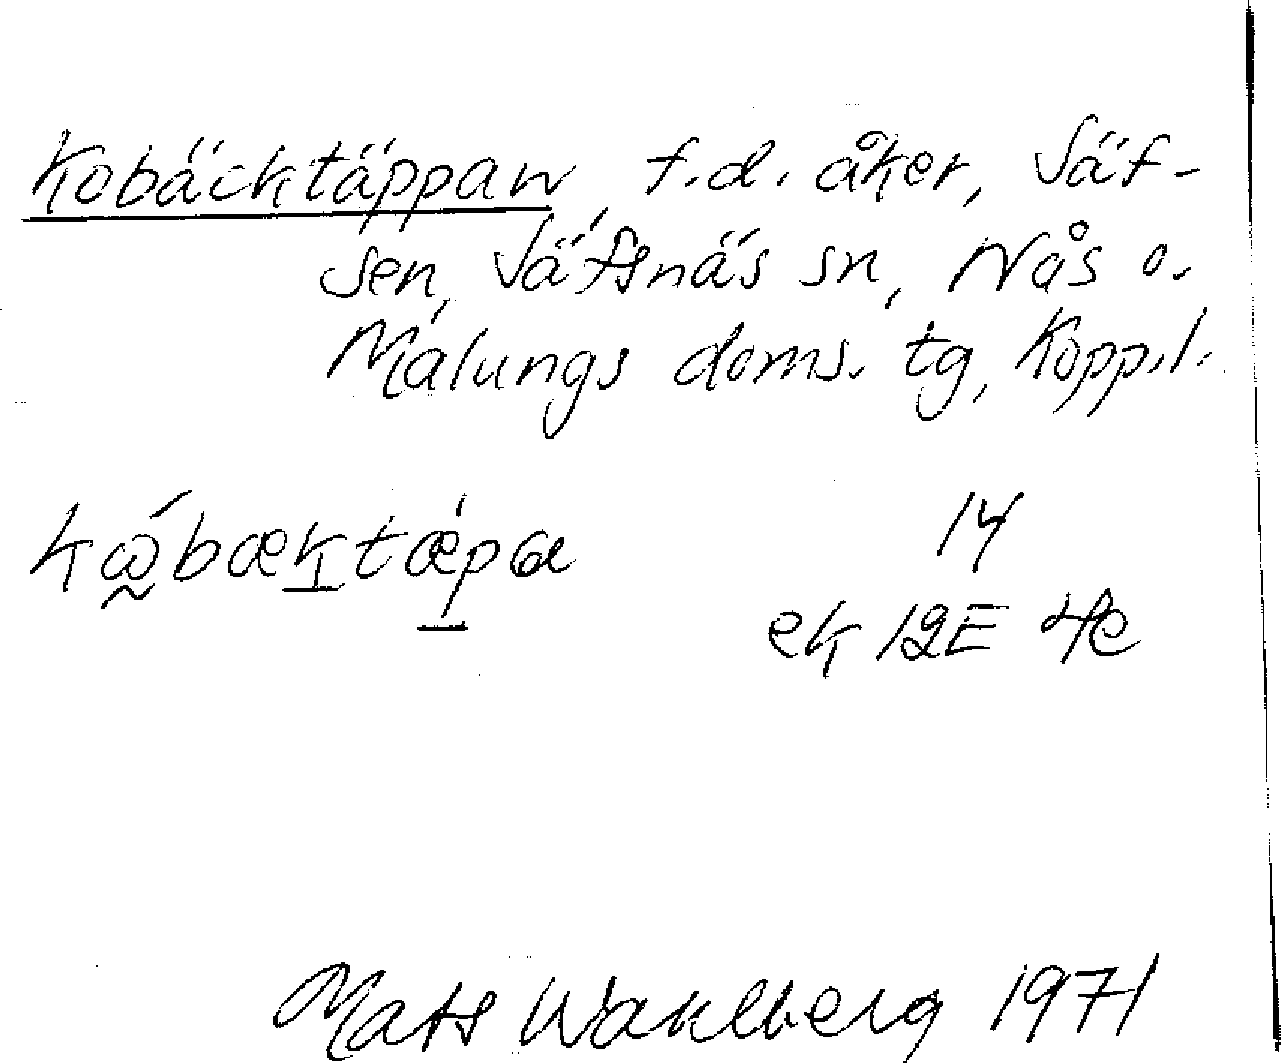 Kobäcktäppan, f.d. åker, Säf-
sen, Säfsnäs sn, Nås o.
Malungs doms. tg, Kopp. l.
14
ek 12E 4e
Mats Wahlberg 1971